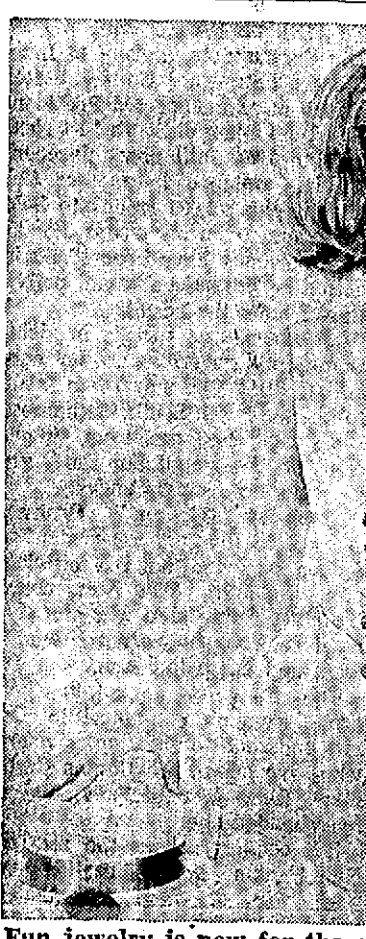 Fun jewelry is now for the